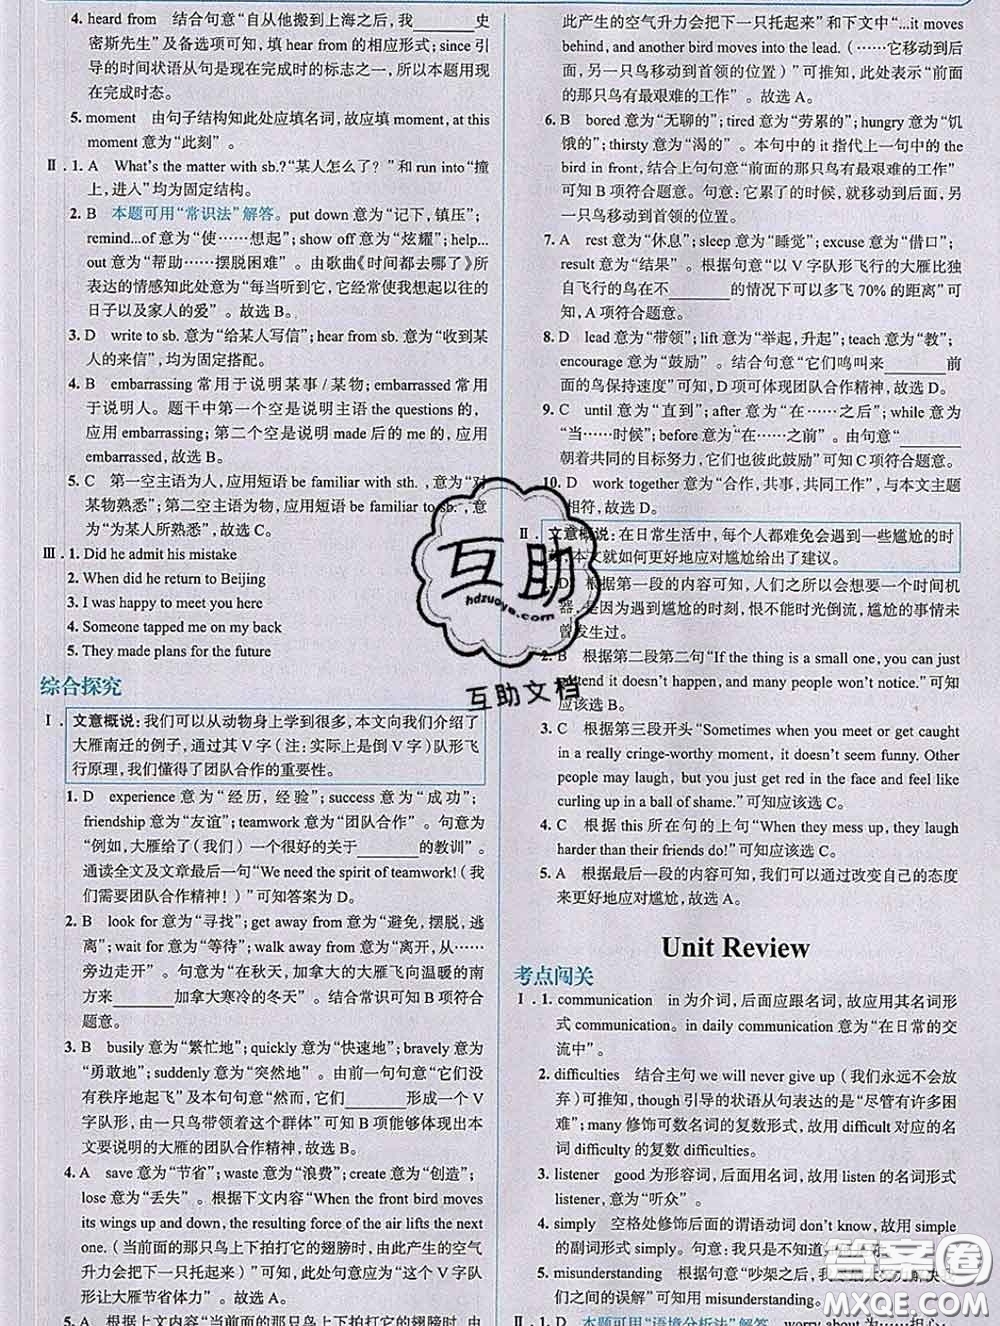 4. heard from　结合句意“自从他搬到上海之后，我______史
密斯先生”及备选项可知，填 hear from 的相应形式；since 引
导的时间状语从句是现在完成时的标志之一，所以本题用现
在完成时态。
5. moment　由句子结构知此处应填名词，故应填 moment，at this
moment 意为“此刻”。
Ⅱ. 1. A　What's the matter with sb.?“某人怎么了？”和 run into“撞
上，进入”均为固定结构。
2. B　本题可用“常识法”解答。put down 意为“记下，镇压”；
remind...of 意为“使……想起”；show off 意为“炫耀；help...
out 意为“帮助……摆脱困难”。由歌曲《时间都去哪了》所
表达的情感知此处意为“每当听到它，它经常使我想起以往的
日子以及家人的爱”。故选 B。
3. D　write to sb. 意为“给某人写信”；hear from sb. 意为“收到某
人的来信”，均为固定搭配。
4. B　embarrassing 常用于说明某事/某物；embarrassed 常用
于说明人。题干中第一个空是说明主语 the questions 的，
应用 embarrassing；第二个空是说明 made 后的 me 的，应用
embarrassed，故选 B。
5. C　第一空主语为人，应用短语 be familiar with sth.，意为“对
某物熟悉”；第二空主语为物，应用短语 be familiar to sb.，意
为“为某人所熟悉”。故选 C。
Ⅲ. 1. Did he admit his mistake
2. When did he return to Beijing
3. I was happy to meet you here
4. Someone tapped me on my back
5. They made plans for the future
综合探究
Ⅰ. 文意概说：我们可以从动物身上学到很多，本文向我们介绍了
大雁南迁的例子，通过其 V 字（注：实际上是倒 V 字）队形飞
行原理，我们懂得了团队合作的重要性。
1. D　experience 意为“经历，经验”；success 意为“成功”；
friendship 意为“友谊”；teamwork 意为“团队合作”。句意为
“例如，大雁给了（我们）一个很好的关于______的教训”。
通读全文及文章最后一句“We need the spirit of teamwork!（我
们需要团队合作精神！）”可知答案为 D。
2. B　look for 意为“寻找”；get away from 意为“避免，摆脱，逃
离”；wait for 意为“等待”；walk away from 意为“离开，从……
旁边走开”。句意为“在秋天，加拿大的大雁飞向温暖的南
方来______加拿大寒冷的冬天”。结合常识可知 B 项符合
题意。
3. B　busily 意为“繁忙地”；quickly 意为“快速地”；bravely 意为
“勇敢地”；suddenly 意为“突然地”。由前一句句意“它们没
有秩序地起飞”及本句句意“然而，它们______形成一个 V
字队形，由一只鸟带领着这个群体”可知 B 项能够体现出本
文要说明的大雁的团队合作精神，故选 B。
4. A　save 意为“节省”；waste 意为“浪费”；create 意为“创造”；
lose 意为“丢失”。根据下文内容“When the front bird moves
its wings up and down, the resulting force of the air lifts the next
one.（当前面的那只鸟上下拍打它的翅膀时，由此产生的空气
升力会把下一只托起来）”可知此处句意应为“这个 V 字队
形让大雁节省体力”。故选 A。
5. A　根据上文内容“当前面的那只鸟上下拍打它的翅膀时，由
此产生的空气升力会把下一只托起来”和下文中“...it moves
behind, and another bird moves into the lead.（……它移动到后
面，另一只鸟移动到首领的位置）”可推知，此处表示“前面
的那只鸟有最艰难的工作”。故选 A。
6. B　bored 意为“无聊的”；tired 意为“劳累的”；hungry 意为“饥
饿的”；thirsty 意为“渴的”。本句中的 it 指代上一句中的 the
bird in front，结合上句句意“前面的那只鸟有最艰难的工作”
可知 B 项符合题意。句意：它累了的时候，就移动到后面，另
一只鸟移动到首领的位置。
7. A　rest 意为“休息”；sleep 意为“睡觉”；excuse 意为“借口”；
result 意为“结果”。根据句意“以 V 字队形飞行的大雁比独
自飞行的鸟在不______的情况下可以多飞 70% 的距离”可
知，A 项符合题意。
8. D　lead 意为“带领”；lift 意为“举起，升起”；teach 意为“教”；
encourage 意为“鼓励”。结合句意“它们鸣叫来______前
面的鸟保持速度”可知，D 项可体现团队合作精神，故选 D。
9. C　until 意为“直到”；after 意为“在……之后”；while 意为
“当……时候”；before 意为“在……之前”。由句意“______
朝着共同的目标努力，它们也彼此鼓励”可知 C 项符合题意。
10. D　work together 意为“合作，共事，共同工作”，与本文主题
相符，故选 D。
Ⅱ. 文意概说：在日常生活中，每个人都难免会遇到一些尴尬的时
本文就如何更好地应对尴尬给出了建议。
1. D　根据第一段的内容可知，人们之所以会想要一个时间机
器，是因为遇到尴尬的时刻，恨不能时光倒流，尴尬的事情未
曾发生过。
2. B　根据第二段第二句“If the thing is a small one, you can just
pretend it doesn't happen, and many people won't notice.”可知
应该选 B。
3. C　根据第三段开头“Sometimes when you meet or get caught
in a really cringe-worthy moment, it doesn't seem funny. Other
people may laugh, but you just get red in the face and feel like
curling up in a ball of shame.”可知应该选 C。
4. C　根据 this 所在句的上句“When they mess up, they laugh
harder than their friends do!”可知应该选 C。
5. A　根据最后一段的内容可知，我们可以通过改变自己的态度
来更好地应对尴尬，故选 A。
Unit Review
考点闯关
Ⅰ. 1. communication　in 为介词，后面应跟名词，故应用其名词形
式 communication。in daily communication 意为“在日常的交
流中”。
2. difficulties　结合主句 we will never give up（我们永远不会放
弃）可推知，though 引导的状语从句表达的是“尽管有许多困
难”；many 修饰可数名词的复数形式，故用 difficult 对应的名
词 difficulty 的复数 difficulties。
3. listener　good 为形容词，后面用名词，故用 listen 的名词形式
listener，意为“听众”。
4. simply　空格处修饰后面的谓语动词 don't know，故用 simple
的副词形式 simply。句意：我只是不知道
5. misunderstanding　根据句意“吵架之后，我
们之间的误解”可知用 misunderstanding。
Ⅱ. 1. D　本题可用“语境分析法”解答。worry about 为“担心
互助
hdzuoye.com
互助文档
答案圈
MXQE.COM